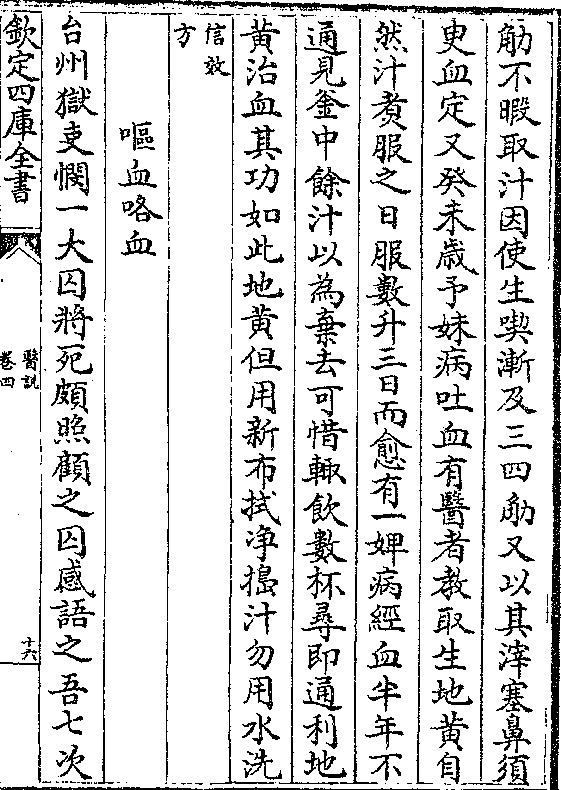 觔不暇取汁因使生喫漸及三四觔又以其滓塞鼻須
㬰血定又癸未歳予妹病吐血有醫者教取生地黄自
然汁煑服之日服數升三日而愈有一婢病經血半年不
通見釜中餘汁以為棄去可惜輙飲數杯尋即通利地
黄治血其功如此地黄但用新布拭净搗汁勿用水洗
信效
方
嘔血咯血
台州獄吏憫一大囚將死頗照顧之囚感語之吾七次
欽定四庫全書
醫説
卷四
十六